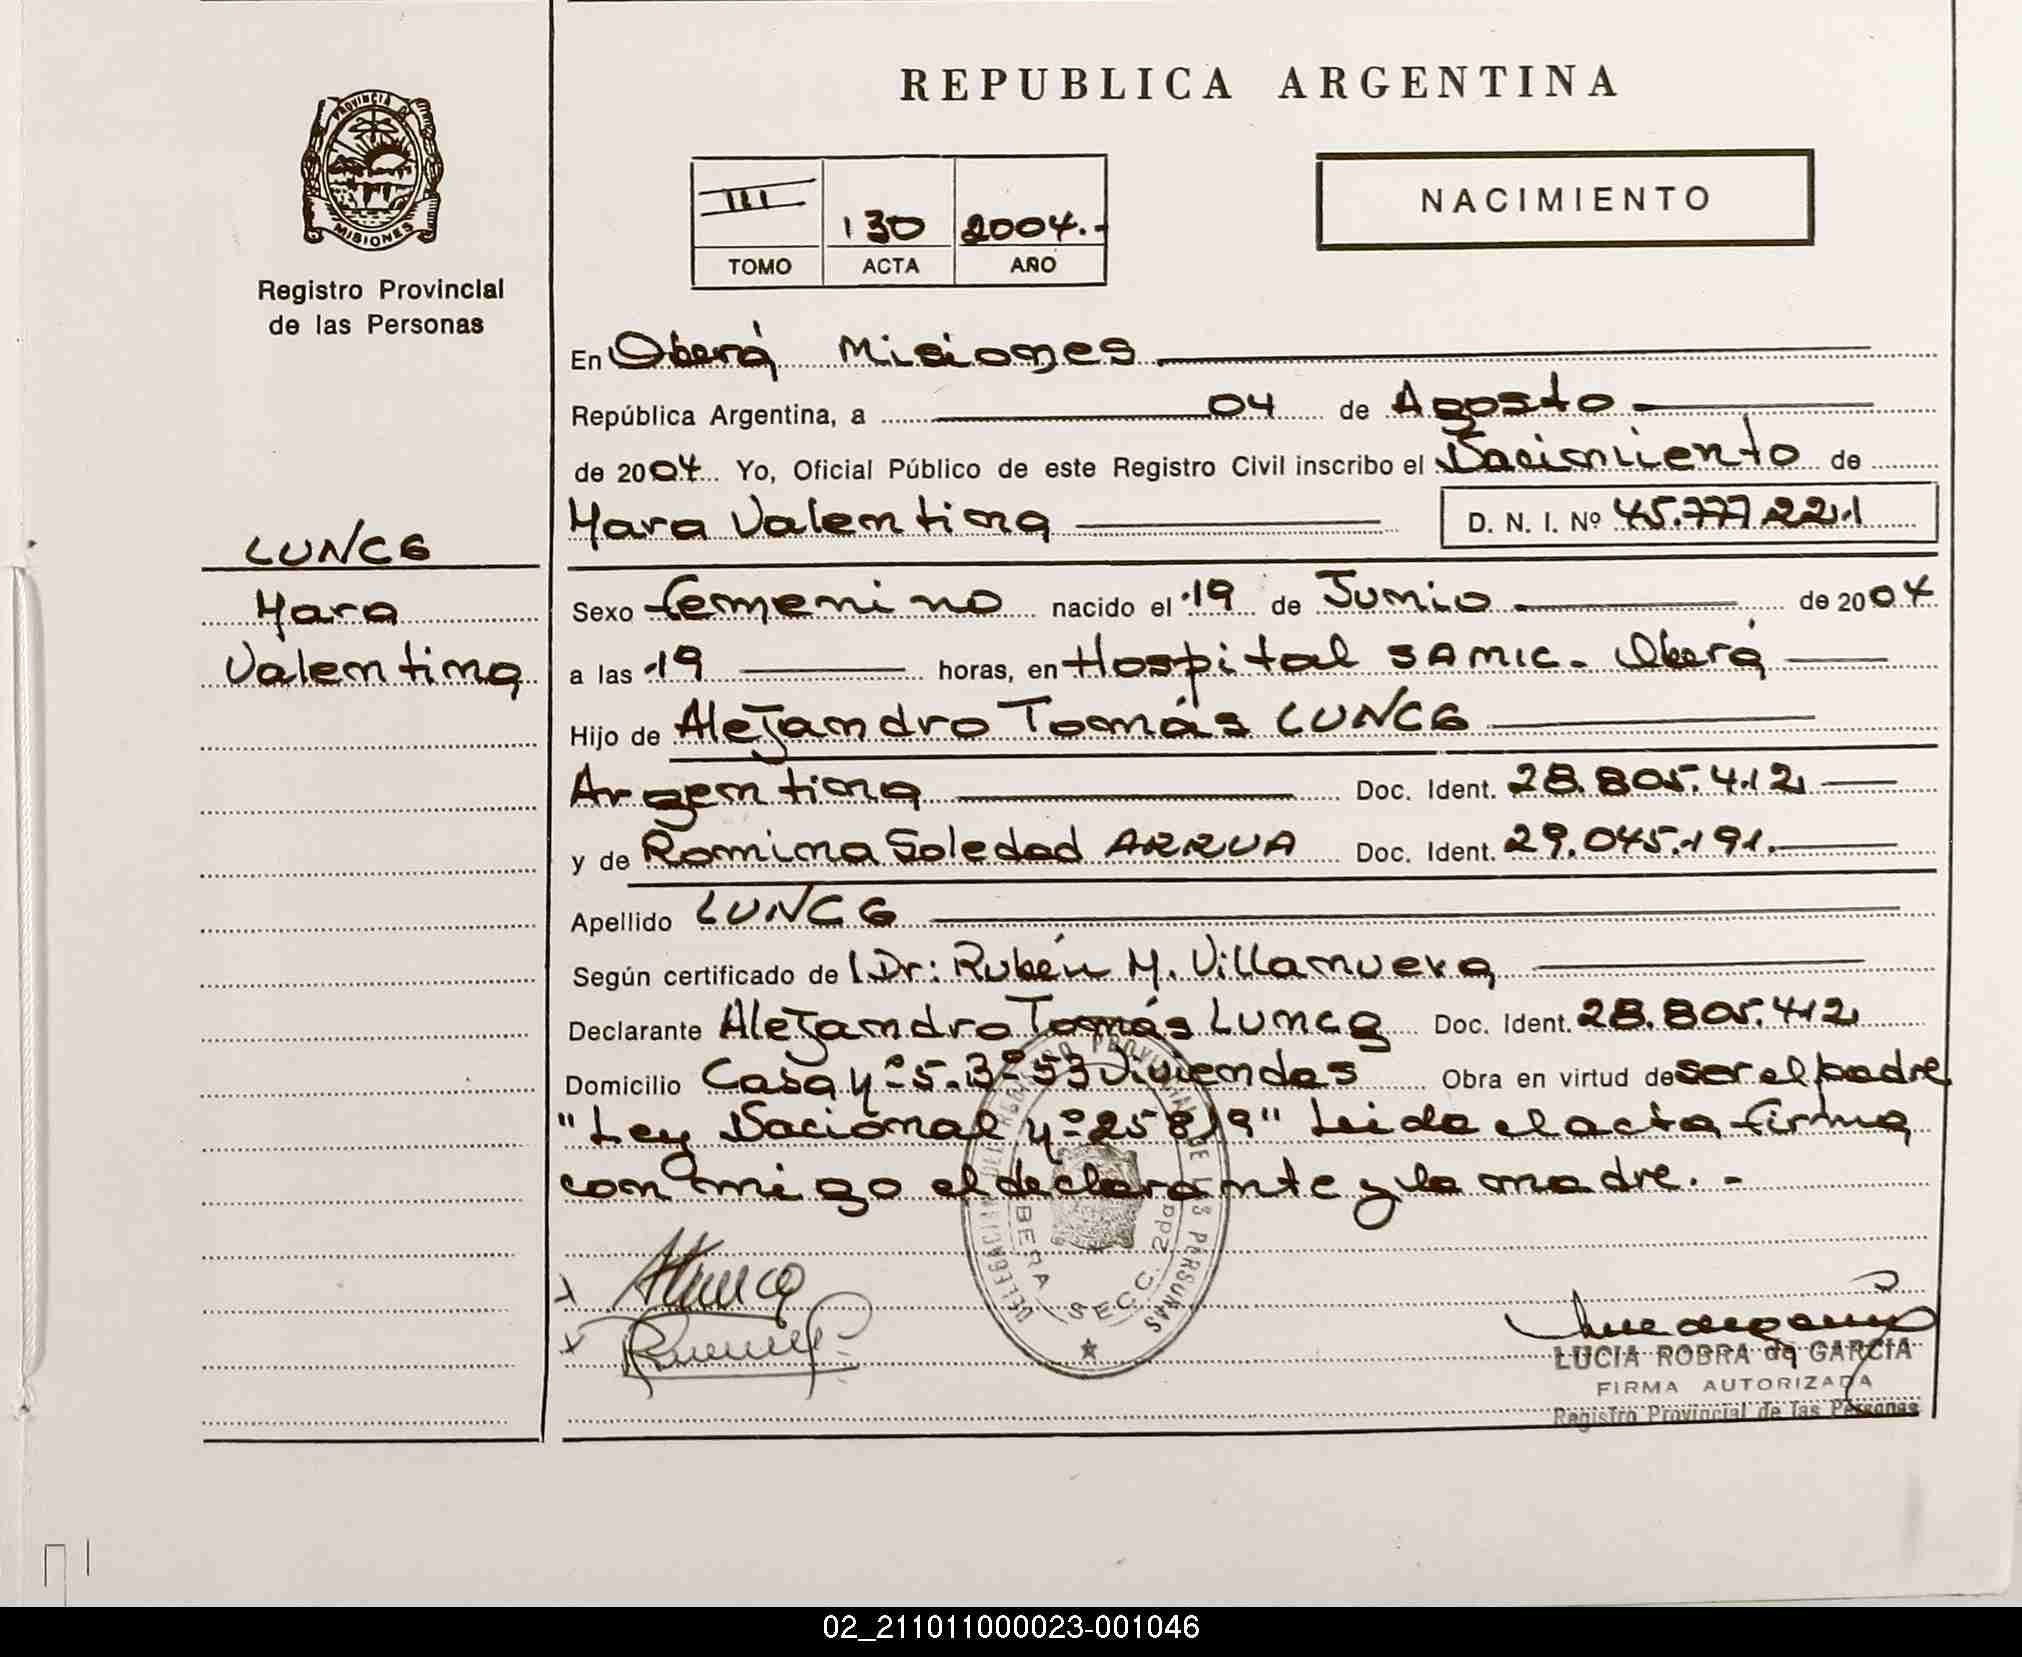 REPUBLICA ARGENTINA
PROVINCIA DE
MISIONES
Registro Provincial
de las Personas
III 130 2004.-
TOMO ACTA AÑO
NACIMIENTO
En Oberá Misiones
República Argentina, a 04 de Agosto
de 2004. Yo, Oficial Público de este Registro Civil inscribo el Nacimiento de
Mara Valentina D. N. I. Nº 45.777.221
LUNCG
Mara
Valentina
Sexo femenino nacido el 19 de Junio de 2004
a las 19 horas, en Hospital SAMIC - Oberá
Hijo de Alejandro Tomás LUNCG
Argentina Doc. Ident. 28.805.412
y de Romina Soledad ARRUA Doc. Ident. 29.045.191.
Apellido LUNCG
Según certificado de Dr: Rubén M. Villanueva
Declarante Alejandro Tomás Luncg Doc. Ident. 28.805.412
Domicilio Casa Nº 5. Bº 53 Viviendas Obra en virtud de ser el padre
"Ley Nacional Nº 25819" Leida el acta firma
con migo el declarante y la madre. -
DELEGACION DEL REGISTRO PROVINCIAL DE LAS PERSONAS
OBERA SECC. 2da
LUCIA ROBRA de GARCIA
FIRMA AUTORIZADA
Registro Provincial de las Personas
02_211011000023-001046